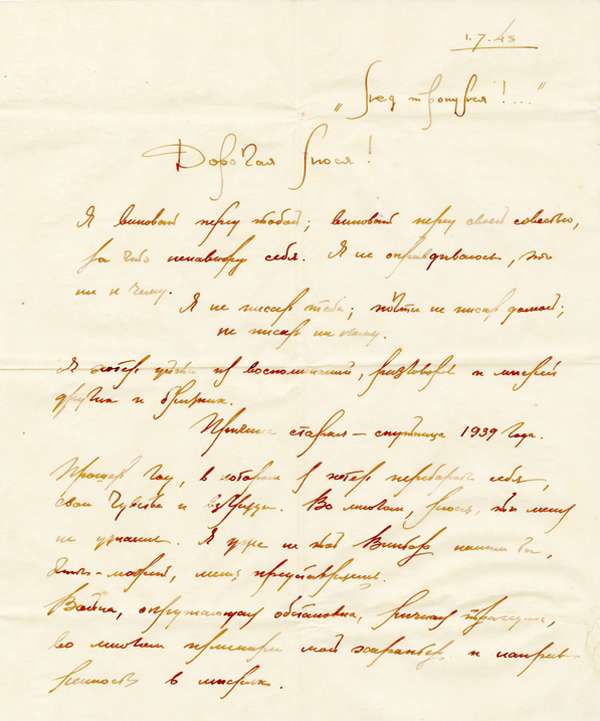 1.7.45
„Лед тронулся!..."
Дорогая Люся!
Я виноват перед тобой; виноват перед своей совестью,
за что ненавижу себя. Я не оправдываюсь, это
ни к чему.
Я не писал тебе; почти не писал домой;
не писал никому.
Я хотел уйти из воспоминаний, разговоров и мыслей
других и близких.
старая – спутница 1939 года.
Прошел год, в котором я хотел перебороть себя,
свои чувства и взгляды. Во многом, Люся, ты меня
не узнаешь. Я уже не тот Виктор каким ты,
быть-может, меня представляешь.
Война, окружающая обстановка, личная трагедия,
во многом мой характер и направ-
ленность в мыслях.